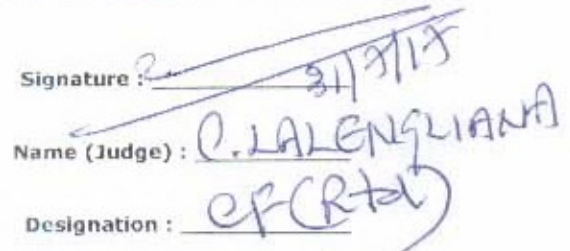 Signature : 31/7/17
Name (Judge) : C. LALENGLIANA
Designation : CF (Rtd)